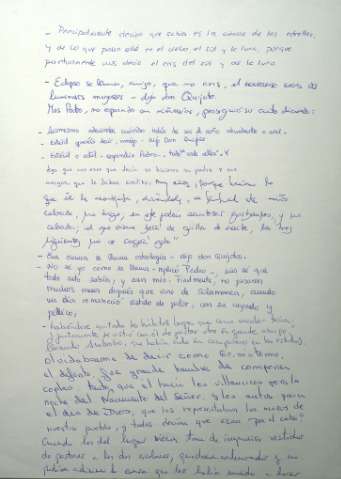 - Principalmente decían que sabía es la ciencia de las estrellas,
y de lo que pasan allá en el cielo, el sol y la luna, porque
puntualmente nos decía el cris del sol y de la luna
- Eclipse se llama, amigo, que no cris, el escurecerse esos dos
luminares mayores - dijo Don Quijote
Mas Pedro, no reparando en niñerías, prosiguió su cuento diciendo:
- Asimesmo adevinaba cuándo había de ser el año abundante o estil.
- Estéril queréis decir, amigo - dijo Don Quijote
- Estéril o estil - respondió Pedro -, todo se sale allá. Y
digo que con esto que decía se hicieron su padre y sus
amigos, que le daban crédito, muy ricos, porque hacían lo
que él les aconsejaba, diciéndoles: - sembrad este año
cebada, no trigo; en este podéis sembrar garbanzos, y no
cebada; el que viene será de guilla de aceite; los tres
siguientes no se cogerá gota"
- Esa ciencia se llama astrología - dijo don Quijote.
- No sé yo cómo se llama - replicó Pedro -, mas sé que
todo esto sabía, y aún más. Finalmente, no pasaron
muchos meses después que vino de Salamanca, cuando
un día remaneció vestido de pastor, con su cayado y
pellico,
habiéndose quitado los hábitos largos que como escolar traía;
y juntamente se vistió con él de pastor otro su grande amigo,
llamado Ambrosio, que había sido su compañero en los estudios.
Olvidábaseme de decir como Grisóstomo,
el difunto, fue grande hombre de componer
coplas: tanto, que él hacía los villancicos para la
noche del Nacimiento del Señor, y los autos para
el día de Dios, que los representaban los mozos de
nuestro pueblo, y todos decían que eran "por el cabo"
Cuando los del lugar vieron tan de improviso vestidos
de pastores a los dos escolares, quedaron admirados y no
podían adivinar la causa que les había movido a hacer